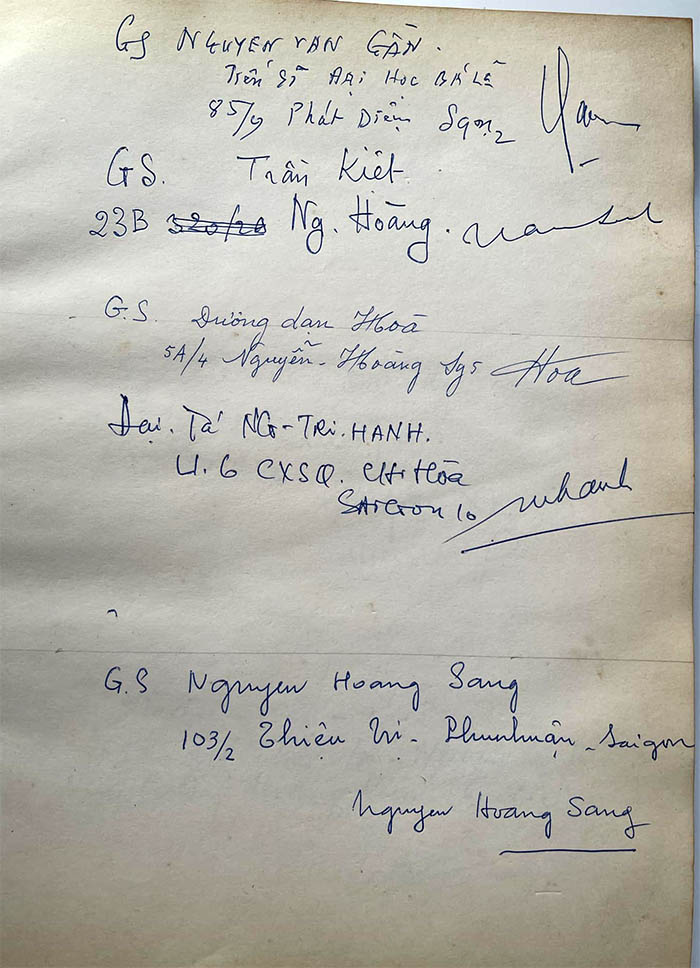 GS NGUYEN VAN GẦN.
Tiến sĩ ĐẠI HỌC BÁ LÊ
85/9 Phát Diệm Sgon2
GS. Trần Kiệt.
23B 320/20 Ng. Hoàng.
G.S. Dương đạn Hoà
5A/4 Nguyễn-Hoàng Sg5 Hoa
Đại. Tá NG-TRI.HANH.
U.6 CXSQ. Chí Hòa
SAIGON 10 nhanh
G.S Nguyen Hoang Sang
103/2 Thiệu Trị - Phunhuận - Saigon
Nguyen Hoang Sang